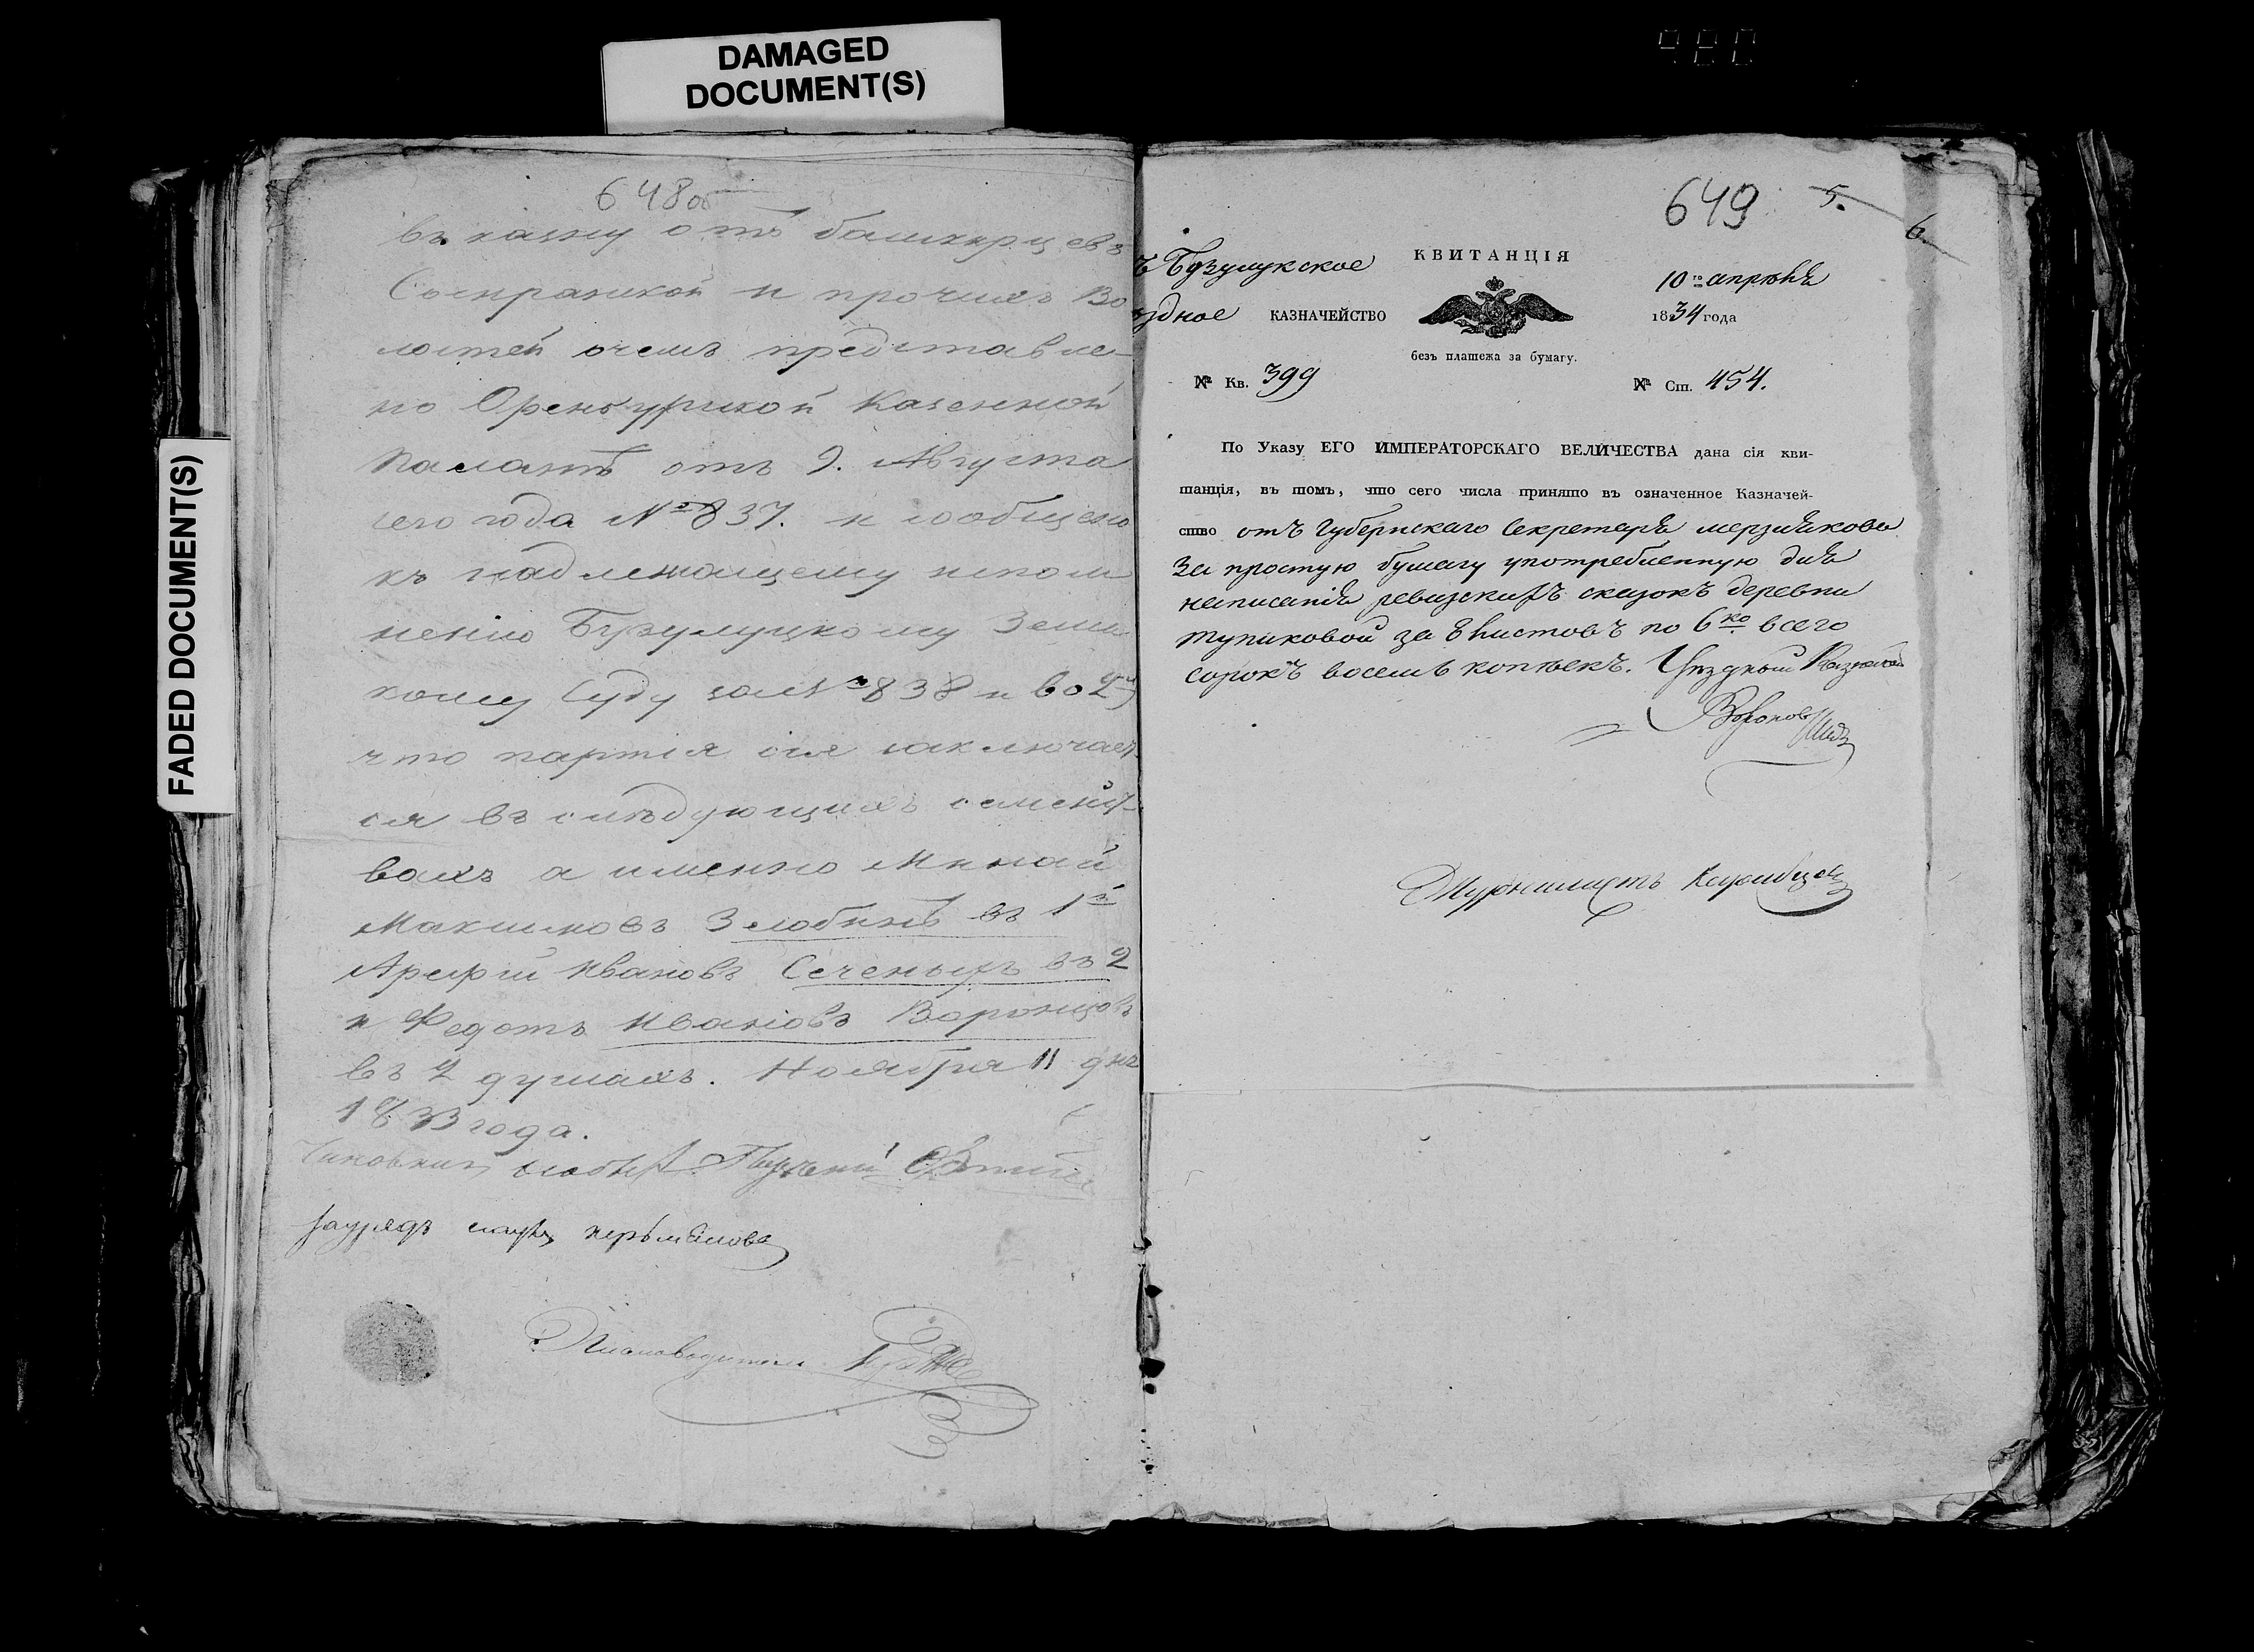 DAMAGED
DOCUMENT(S)
FADED DOCUMENT(S)
648об
въ казну отъ башкирцевъ
и прочихъ Во
лостей очемъ представле
но Оренбургской Казенной
Палатѣ отъ 9. Августа
сего года №837. и сообщено
къ надлежащему испол
нению Бузулуцкому Зем
кому Суду за №838 и во 2хъ
что партия сия заключает
ся въ следующихъ семейст
вахъ а именно Минай
Максимовъ Злобинъ въ 1й
Арефий Ивановъ Сеченыхъ въ 2
и Федотъ Ивановъ Воронцовъ
въ 2 душахъ. Ноября 11 дня
1833 года.
Зауряд
649
5.
6
КВИТАНЦІЯ
ъ Бузулукское
10го апрѣля
ѣздное КАЗНАЧЕЙСТВО
1834 года
безъ платежа за бумагу.
№ Кв. 399
№ Ст. 454.
По Указу ЕГО ИМПЕРАТОРСКАГО ВЕЛИЧЕСТВА дана сія кви-
танція, въ томъ, что сего числа принято въ означенное Казначей-
ство отъ Губернскаго Секретаря мерзлякова
За простую бумагу употребленную для
написанія ревизскихъ сказокъ деревни
тупиковой за 8 листовъ по 6 ко всего
сорокъ восемь копѣекъ. Уѣздный Казначей
Журналистъ